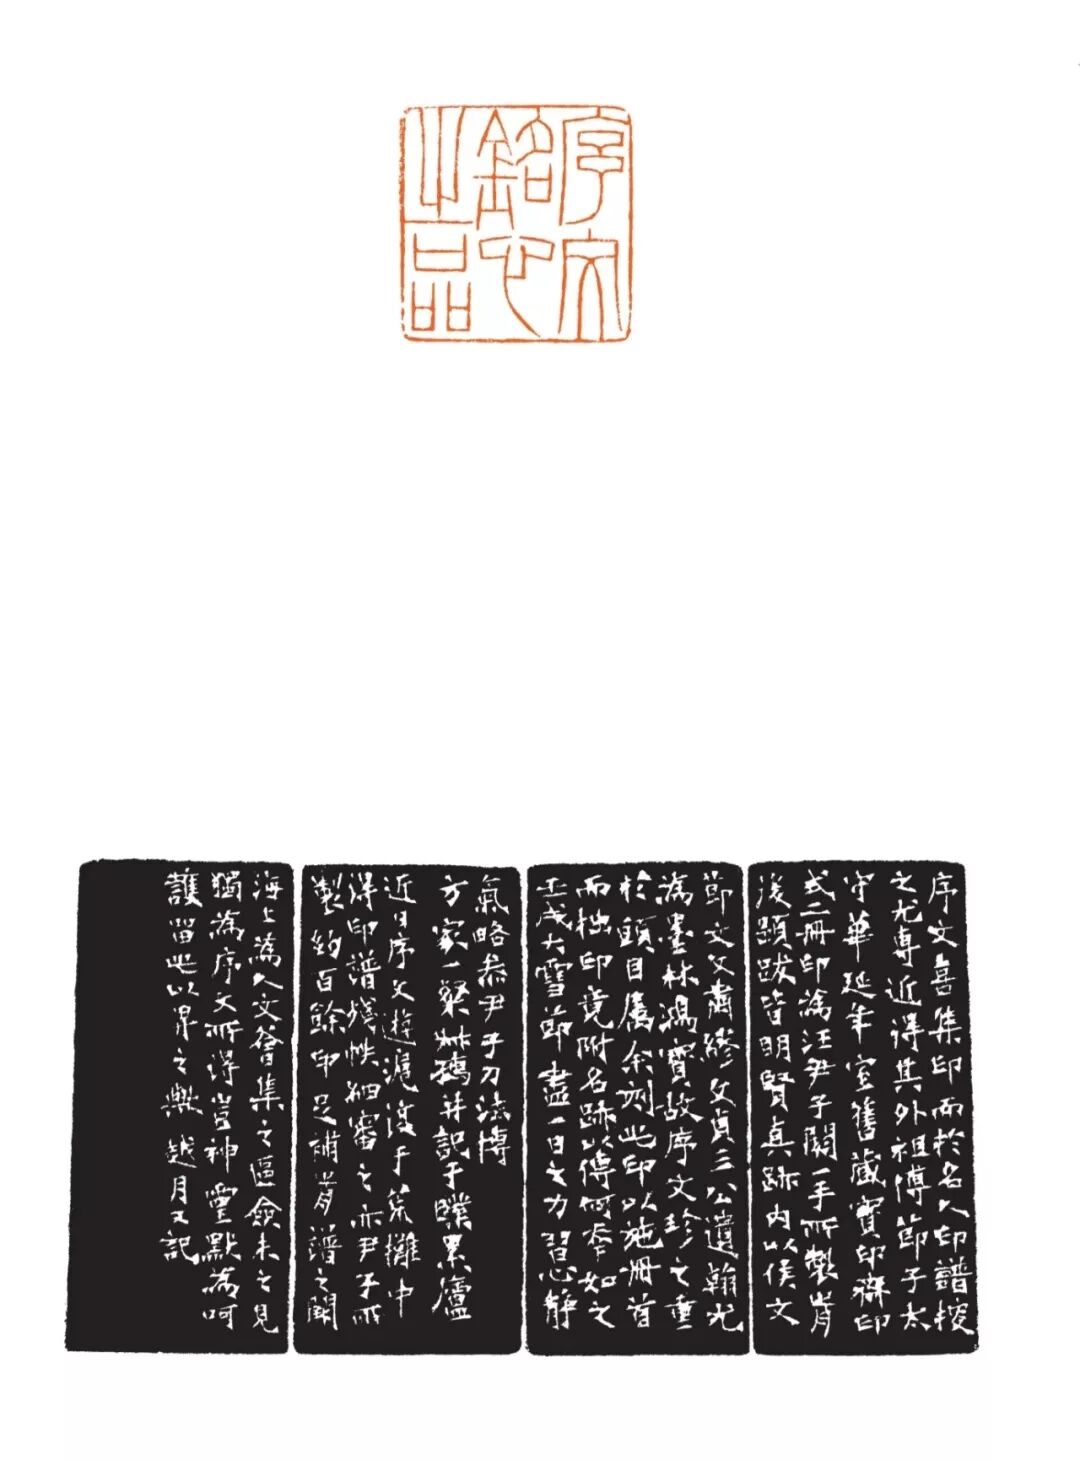 序文
銘心
之品
序文喜集印而於名人印譜搜
之尤專近得其外祖傅節子太
守華延年室舊藏寶印齋印
式二冊印為汪尹子關一手所製前
後題跋皆明賢真跡內以侯文
節文文肅繆文貞三公遺翰尤
為墨林鴻寶故序文珍之重
於頭目屬余刻此印以施冊首
而拙印竟附名跡以傳何幸如之
壬戌大雪節盡一日之力習心靜
氣略參尹子刀法博
方家一粲 記于廬
近日序文遊滬瀆于荒攤中
得印譜殘帙細審之亦尹子所
製約百餘印足補前譜之闕
海上為人文薈集之區僉未之見
獨為序文所得豈神靈默為呵
護留此以畀之歟 越月又記